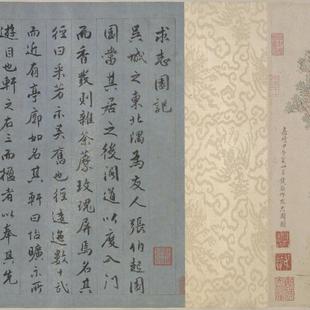 求志園記
吳城之東北隅為友人張伯起
園當其居之後間道以度入門
而香發則雜荼蘼玫瑰屏焉名其
徑曰采芳示吳舊也徑逶迤數十武
而近有亭廓如名其軒曰怡曠示所
遊目也軒之右三而楹者以奉其先
嘉靖甲子夏四月錢穀作求志園圖